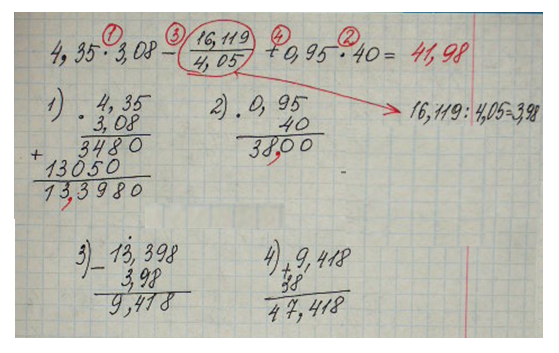 ① ③ ④ ②
4,35 · 3,08 - 16,119/4,05 + 0,95 · 40 = 41,98
16,119 : 4,05 = 3,98
1) 4,35
· 3,08
3480
+ 13050
13,3980
2) 0,95
· 40
38,00
3) 13,398
- 3,98
9,418
4) 9,418
+ 38
47,418